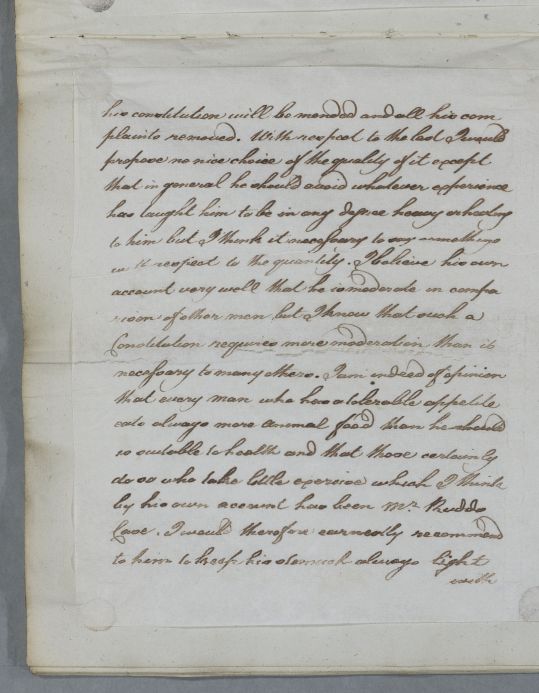 his constitution will be mended and all his com
plaints removed. With respect to the last I would
propose no nice choice of the quality of it except
that in general he should avoid whatever experience
has taught him to be in any degree heavy or heating
to him but I think it necessary to say something
with respect to the quantity. I believe his own
account very well that he is moderate in compa
rison of other men but I know that such a
Constitution requires more moderation than is
necessary to many others. I am indeed of opinion
that every man who has a tolerable appetite
eats always more animal food than he should
is suitable to health and that those certainly
do so who take little exercise which I think
by his own account has been Mr. Rudds
Case. I would therefore earnestly recommend
to him to keep his stomach always light
with